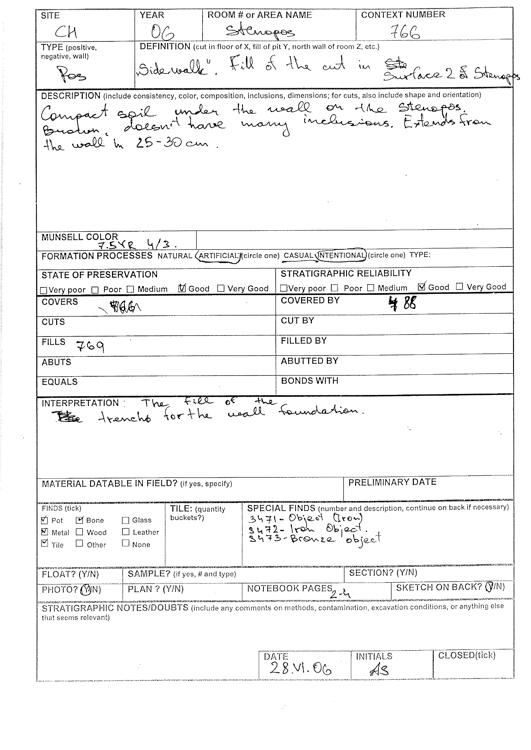 SITE YEAR ROOM # or AREA NAME CONTEXT NUMBER
CH 06 Stenopos 766
TYPE (positive, negative, wall) DEFINITION (cut in floor of X, fill of pit Y, north wall of room Z, etc.)
Pos "Sidewalk". Fill of the cut in Surface 2 of Stenopos
DESCRIPTION (include consistency, color, composition, inclusions, dimensions; for cuts, also include shape and orientation)
Compact soil under the wall on the Stenopos.
Brown, doesn't have many inclusions. Extends from
the wall in 25-30cm.
MUNSELL COLOR
7.5YR 4/3.
FORMATION PROCESSES NATURAL ARTIFICIAL (circle one) CASUAL INTENTIONAL (circle one) TYPE:
STATE OF PRESERVATION STRATIGRAPHIC RELIABILITY
Very poor Poor Medium Good Very Good Very poor Poor Medium Good Very Good
COVERS COVERED BY 788
CUTS CUT BY
FILLS 769 FILLED BY
ABUTS ABUTTED BY
EQUALS BONDS WITH
INTERPRETATION : The fill of the
trench for the wall foundation.
MATERIAL DATABLE IN FIELD? (if yes, specify) PRELIMINARY DATE
FINDS (tick) TILE: (quantity buckets?) SPECIAL FINDS (number and description, continue on back if necessary)
Pot Bone Glass 3471- Object (Iron)
Metal Wood Leather 3472- Iron Object.
Tile Other None 3473- Bronze object
FLOAT? (Y/N) SAMPLE? (if yes, # and type) SECTION? (Y/N)
PHOTO? (Y/N) PLAN ? (Y/N) NOTEBOOK PAGES 2-4 SKETCH ON BACK? (Y/N)
STRATIGRAPHIC NOTES/DOUBTS (include any comments on methods, contamination, excavation conditions, or anything else
that seems relevant)
DATE INITIALS CLOSED(tick)
28.VI.06 AS